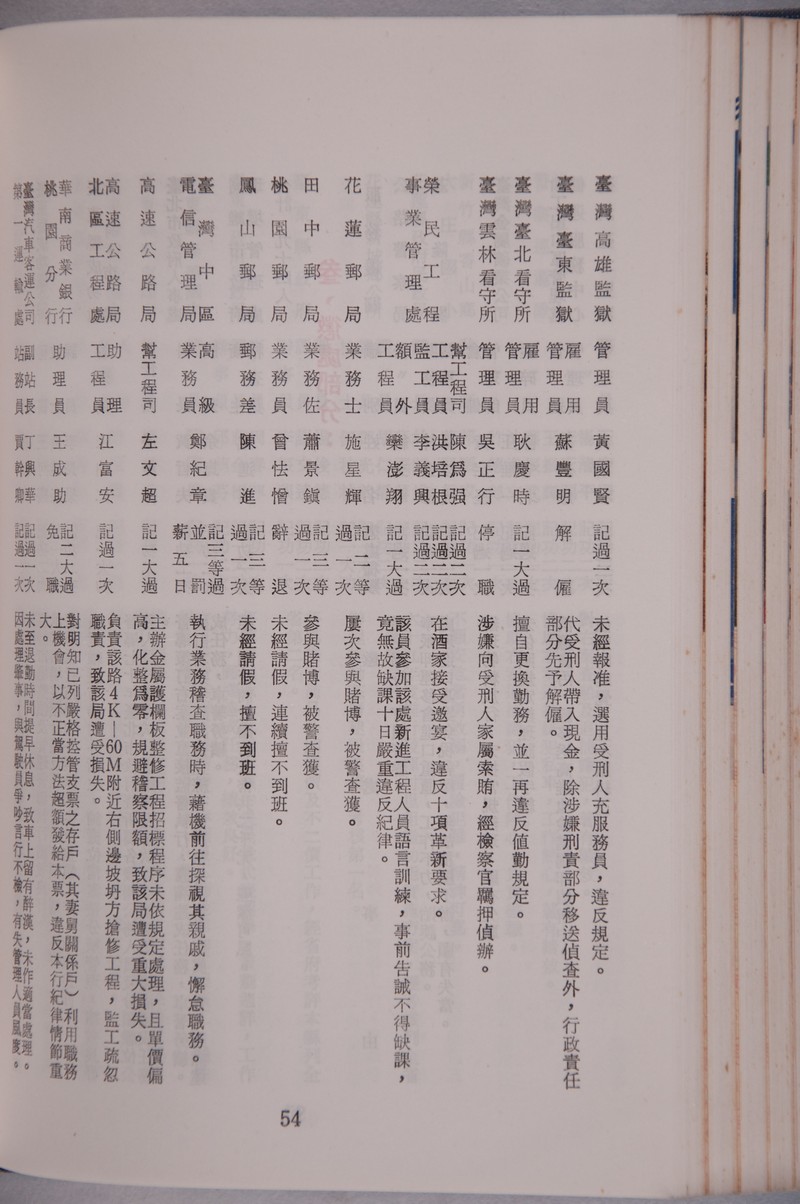 臺灣高雄監獄 管理員 黃國賢 記過一次 未經報准，選用受刑人充服務員，違反規定。
臺灣臺東監獄 雇用管理員 蘇豐明 解僱 代受刑人帶入現金，除涉嫌刑責部分移送偵查外，行政責任部分先予解僱。
臺灣臺北看守所 雇用管理員 耿慶時 記一大過 擅自更換勤務，並一再違反值勤規定。
臺灣雲林看守所 管理員 吳正行 停職 涉嫌向受刑人家屬索賄，經檢察官羈押偵辦。
榮民工程事業管理處 幫工程司 陳爲强 記過二次
工程員 洪培根 記過二次 在酒家接受邀宴，違反十項革新要求。
監工員 李義興 記過二次
額外工程員 欒澎翔 記一大過 該員參加該處新進工程人員語言訓練，事前告誡不得缺課，竟無故缺課十日嚴重違反紀律。
花蓮郵局 業務士 施星輝 記二等過一次 屢次參與賭博，被警查獲。
田中郵局 業務佐 蕭景鎭 記三等過一次 參與賭博，被警查獲。
桃園郵局 業務員 曾怯憎 辭退 未經請假，連續擅不到班。
鳳山郵局 郵務差 陳進 記三等過一次 未經請假，擅不到班。
臺灣中區電信管理局 高級業務員 鄭紀章 記三等過並罰薪五日 執行業務稽查職務時，藉機前往探視其親戚，懈怠職務。
高速公路局 幫工程司 左文超 記一大過 主辦金屬護欄板整修工程招標程序未依規定處理，且單價偏高，化整爲零，規避稽察限額，致該局遭受重大損失。
高速公路局北區工程處 助理工程員 江富安 記過一次 負責該路4K—60M附近右側邊坡坍方搶修工程，監工疏忽職責，致該局遭受損失。
華南商業銀行桃園分行 助理員 王成助 記二大過免職 對明知已列嚴格控管支票之存戶（其妻舅關係戶）利用職務上機會，以不正當方法超額發給本票，違反本行紀律情節重大。
臺灣汽車客運公司第一運輸處 副站長 丁興華 記過一次 未至退勤時間提早休息，致車上留有醉漢，未作適當處理。
站務員 賈幹卿 記過一次 因處理肇事，與駕駛員爭吵言行不檢，有失管理人員風度。
54